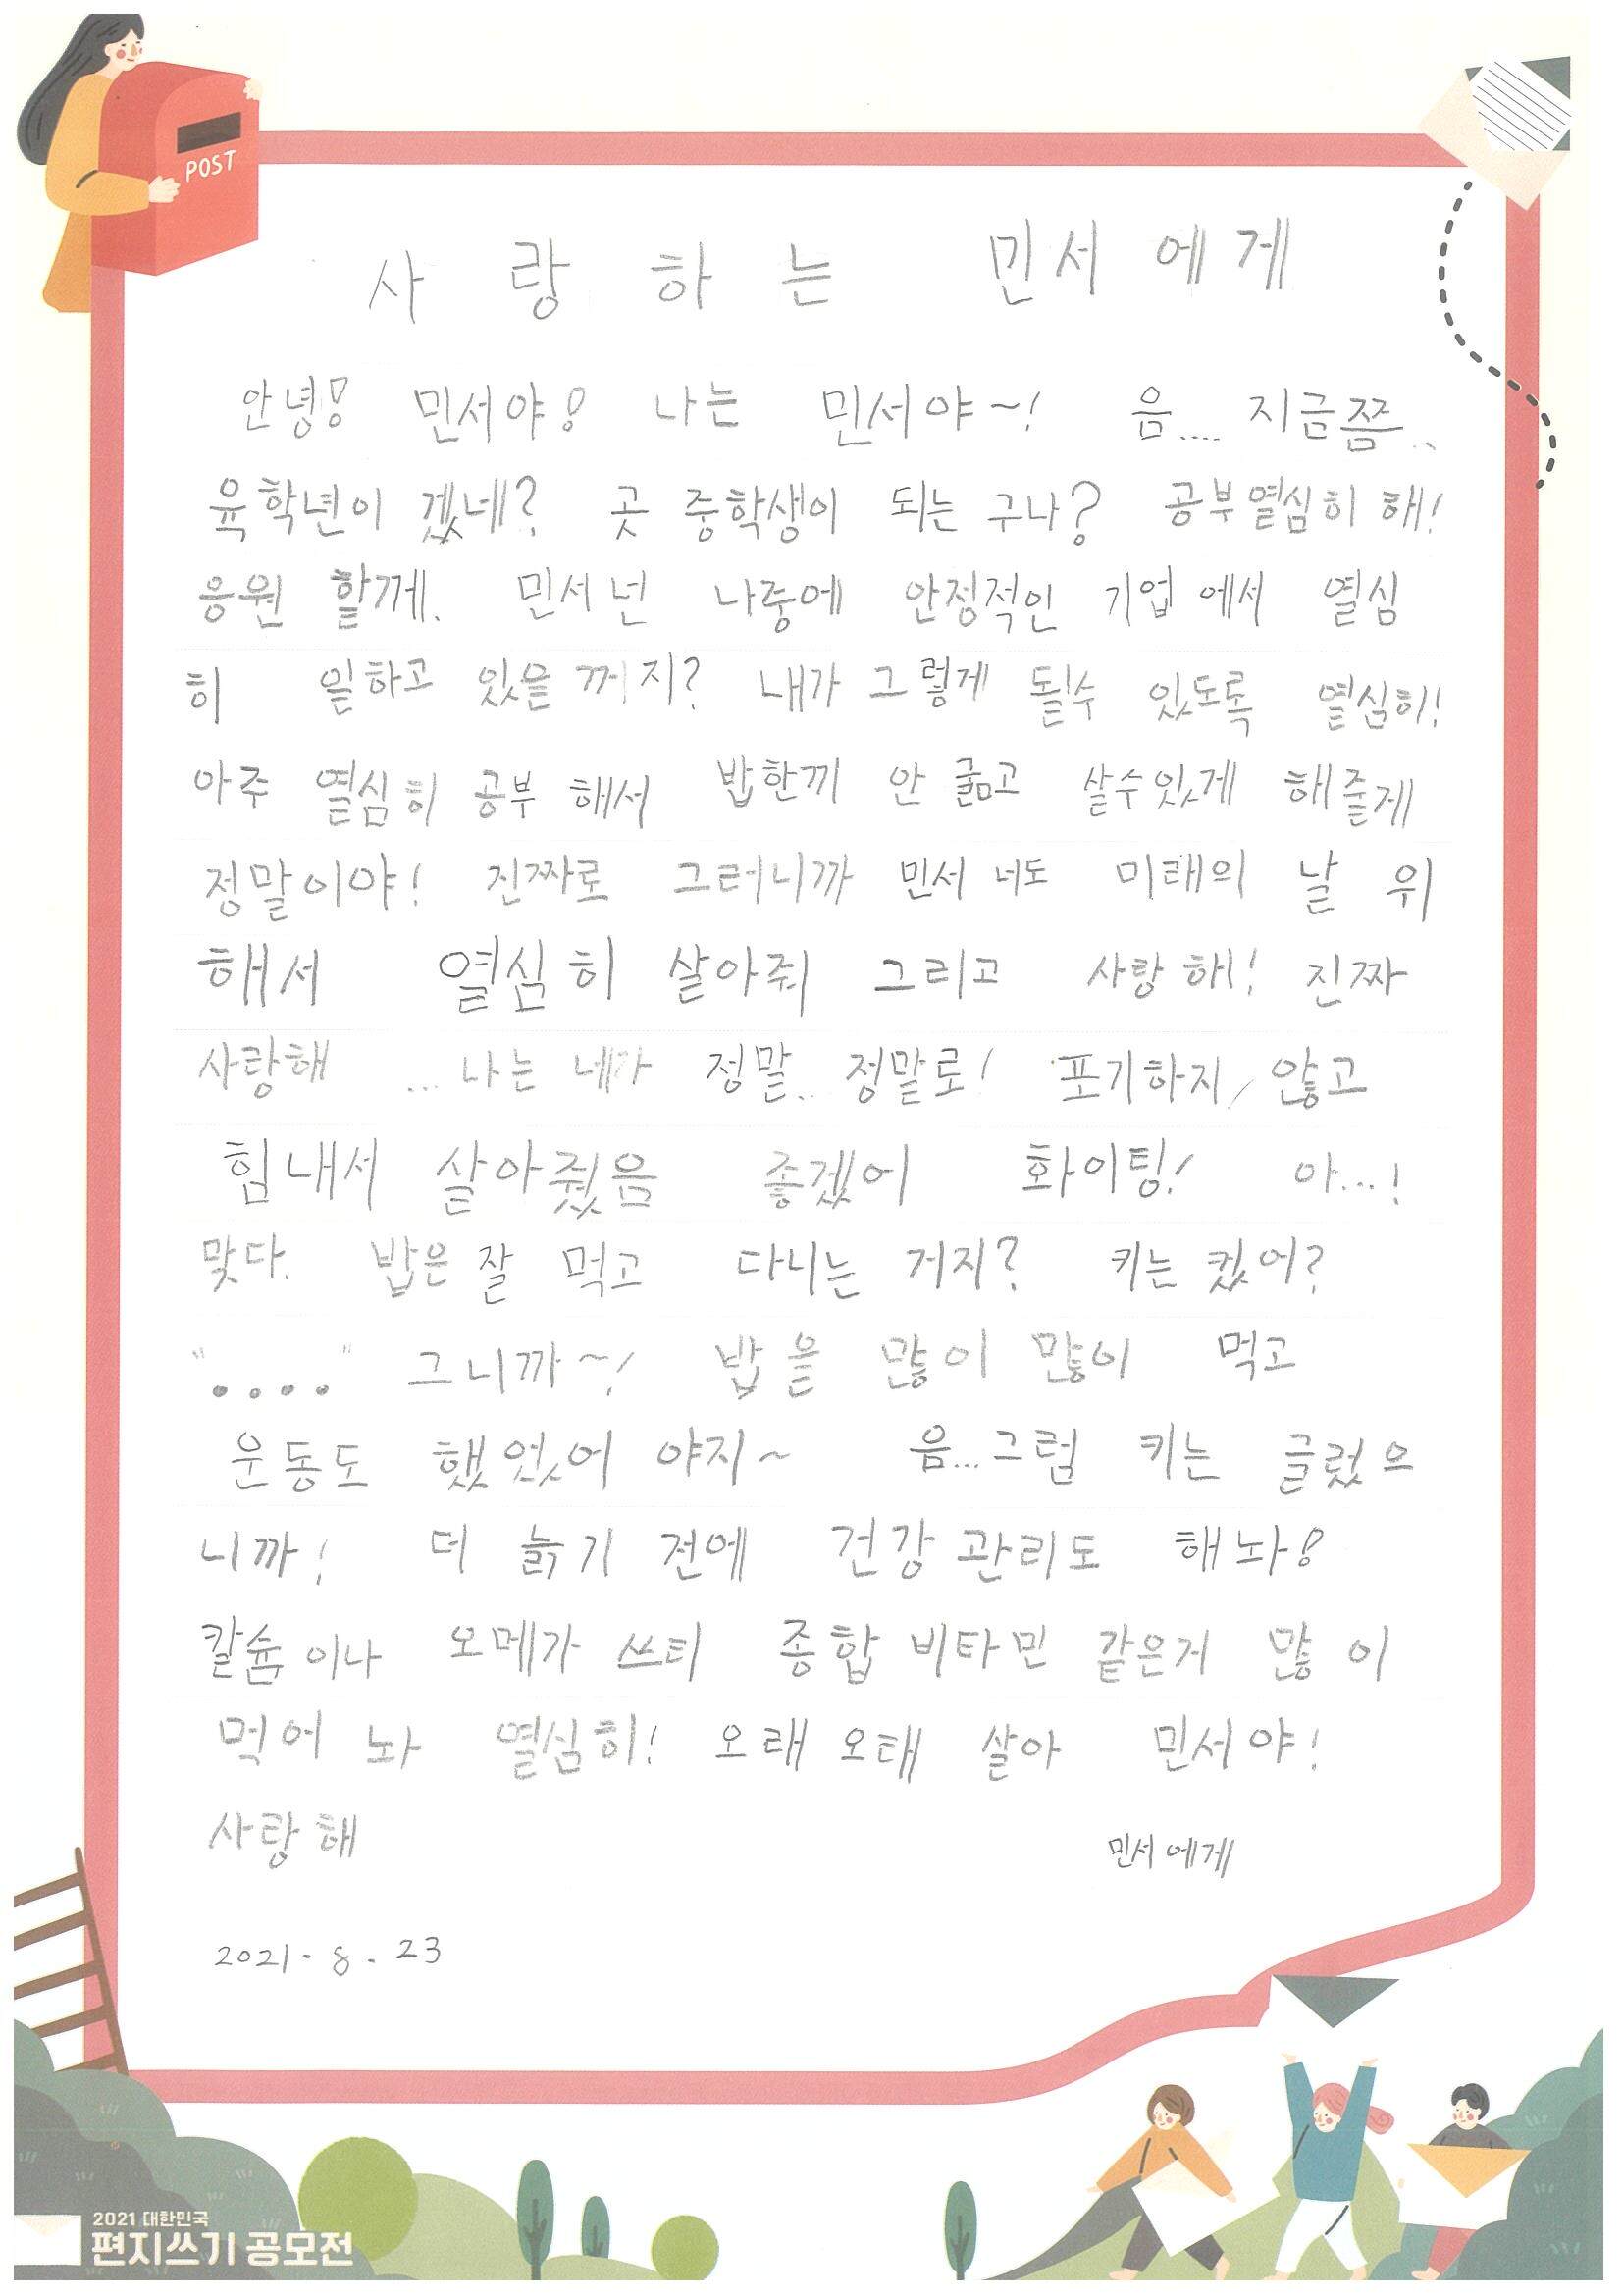 POST
사랑하는 민서에게
안녕! 민서야! 나는 민서야~! 음.... 지금쯤..
육학년이 겠네? 곳 중학생이 되는 구나? 공부열심히 해!
응원 할께. 민서넌 나중에 안정적인 기업에서 열심
히 일하고 있을 꺼지? 내가 그렇게 될수 있도록 열심히!
아주 열심히 공부 해서 밥한끼 안 굶고 살수있게 해줄게
정말이야! 진짜로 그러니까 민서 너도 미래의 날 위
해서 열심히 살아줘 그리고 사랑해! 진짜
사랑해 ... 나는 네가 정말.. 정말로! 포기하지 않고
힘내서 살아줬음 좋겠어 화이팅! 아...!
맞다. 밥은 잘 먹고 다니는 거지? 키는 컸어?
"...." 그니까~! 밥을 많이 많이 먹고
운동도 했었어 야지~ 음...그럼 키는 글렀으
니까! 더 늙기 전에 건강관리도 해놔!
칼슘이나 오메가 쓰티 종합 비타민 같은거 많이
먹어 놔 열심히! 오래 오태 살아 민서야!
사랑해 민서에게
2021. 8. 23
2021 대한민국
편지쓰기 공모전